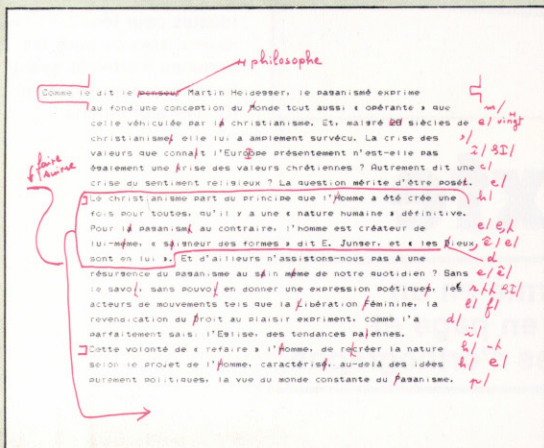 philosophe
Comme le dit le penseur Martin Heidegger, le paganisme exprime
au fond une conception du Monde tout aussi « opérante » que m/
celle véhiculée par la christianisme. Et, malgré 20 siècles de e/ vingt
christianisme, elle lui a amplement survécu. La crise des
valeurs que connaît l'Europe présentement n'est-elle pas
également une crise des valeurs chrétiennes ? Autrement dit une c/
crise du sentiment religieux ? La question mérite d'être posée. e/
faire suivre
Le christianisme part du principe que l'Homme a été crée une h/
fois pour toutes, qu'il y a une « nature humaine » définitive.
Pour le paganisme au contraire, l'homme est créateur de
lui-même, « seigneur des formes » dit E. Junger, et « les Dieux
sont en lui ». Et d'ailleurs n'assistons-nous pas à une d
résurgence du paganisme au sein même de notre quotidien ? Sans
le savoir, sans pouvoir en donner une expression poétique, les
acteurs de mouvements tels que la Libération Féminine, la l/ f/
revendication du Droit au plaisir expriment, comme l'a d/
parfaitement saisi l'Eglise, des tendances païennes. ï/
Cette volonté de « refaire » l'Homme, de recréer la nature h/
selon le projet de l'Homme, caractérise, au-delà des idées h/ e/
purement politiques, la vue du monde constante du Paganisme. p/